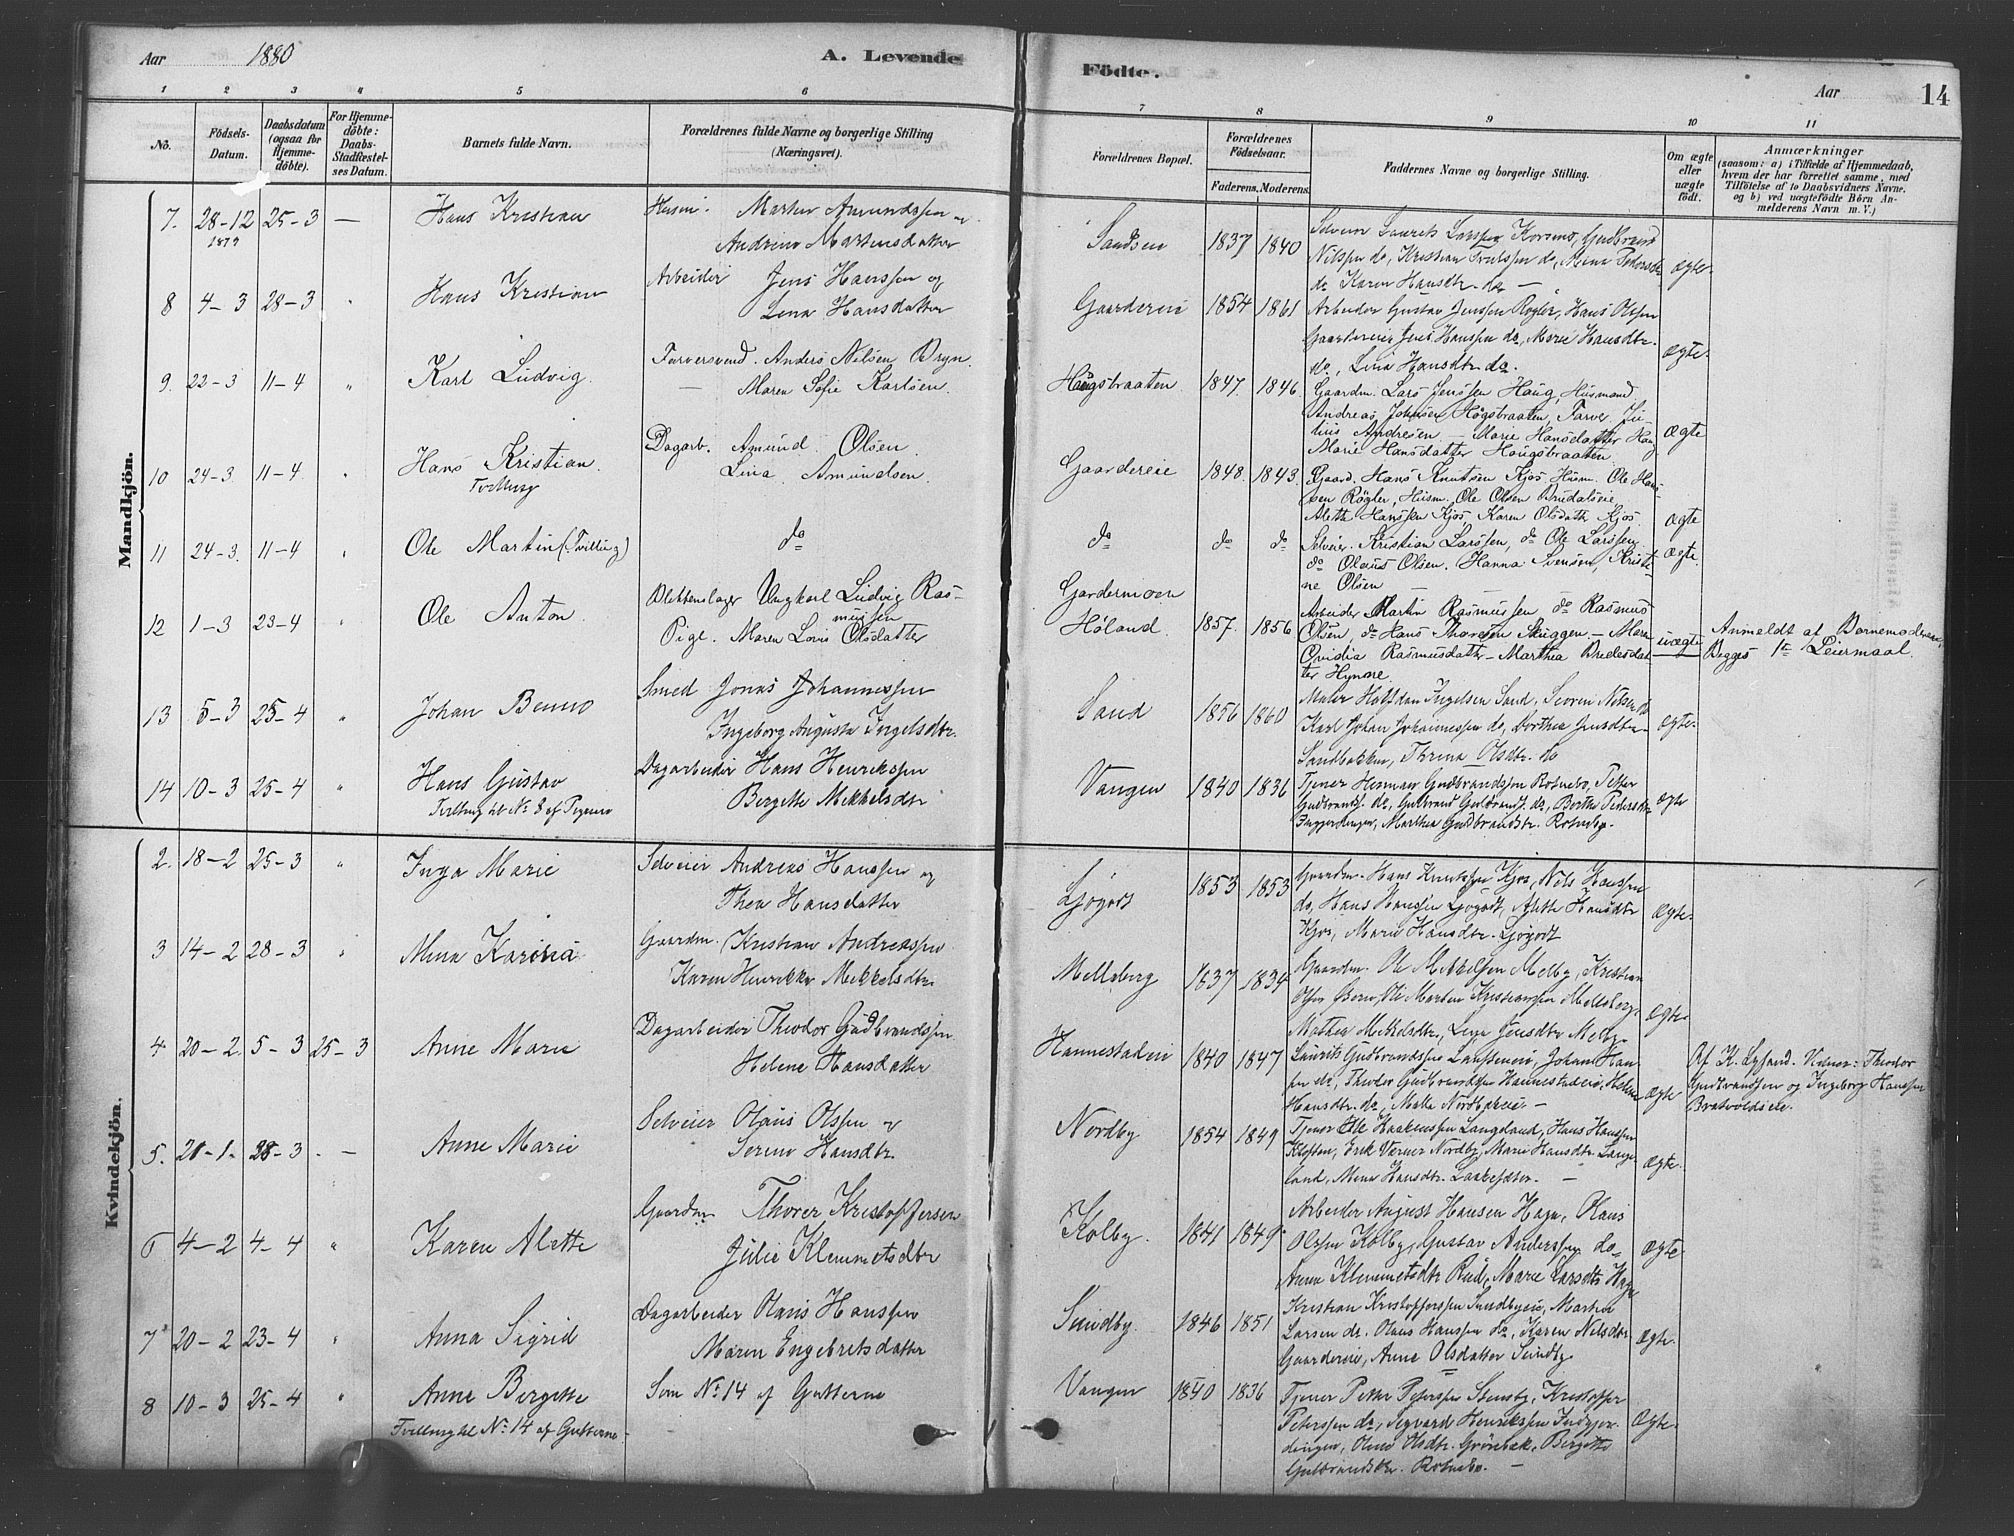 Aar 1880 A. Levende Födte. Aar 14
1 2 3 4 5 6 7 8 9 10 11
No. Födsels-Datum. Daabsdatum (ogsaa for Hjemmedöbte). For Hjemmedöbte: Daabs-Stadfæstelses Datum. Barnets fulde Navn. Forældrenes fulde Navne og borgerlige Stilling (Næringsvei). Forældrenes Bopæl. Forældrenes Födselsaar. Faderens. Moderens. Faddernes Navne og borgerlige Stilling. Om ægte eller uægte födt. Anmærkninger (saasom: a) i Tilfælde af Hjemmedaab, hvem der har forrettet samme, med Tilföielse af to Daabsvidners Navne, og b) ved uægtefödte Börn Anmelderens Navn m. V.)
Mandkjön.
7. 28-12 1879 25-3 — Hans Kristian
Martin Amundssen
Andrine Martinsdatter
1837 1840
Nilssen do, Kristian
do Karen Hansdtr. do — ægte.
8 4-3 28-3 " Hans Kristian
Arbeider Jens Hanssen og
Lina Hansdatter
Gaardereie 1854 1861
Arbeider Gustav Jenssen Røgler, Hans Olsen
Gaardereie, Jens Hanssen do, Marie Hansdtr.
do, Lina Hansdtr do. ægte.
9. 22-3 11-4 " Karl Ludvig.
Farversvend. Anders Nilsen Bryn.
— Maren Sofie Karlsen.
Haugsbraaten 1847. 1846.
Gaardm. Lars Jenssen Haug, Husmand
Andreas Johnsen Høgsbraaten, Farver Ju-
lius Andresen — Marie Hansdatter Haug
Marie Hansdatter Haugsbraaten. ægte
10 24-3. 11-4 " Hans Kristian.
Tvilling
Dagarb. Amund Olsen.
Lina Amundsen.
Gaardereie 1848. 1843.
Gaard. Hans Knutsen Kjos Husm. Ole Hans-
sen Røgler, Husm. Ole Olsen
Alethe Hanssen Kjos, Karen Olsdatter Kjos. ægte
11 24-3. 11-4 " Ole Martin (Tvilling)
do do do do
Selveier. Kristian Larssen, do Ole Larssen.
do Olaus Olsen. Hanna Svensen, Kristi-
ne Olsen — ægte.
12 1-3 23-4 " Ole Anton.
Ungkarl Ludvig Ras-
mussen
Pige. Maren Lovis Olsdatter
Gardermoen
Høland. 1857. 1856.
Arbeider Martin Rasmussen do Rasmus
Olsen, do Hans Thoresen — Maren
Ovidia Rasmusdatter — Marthea
uægte
Anmeldt af Barnemoderen,
Begges 1ste Leiermaal.
13 5-3 25-4 " Johan Benno
Smed Jonas Johannessen
Ingeborg Augusta Ingelsdtr.
Sand 1856 1860
Maler Halfdan Ingelsen Sand,
Karl Johan Johannessen do, Dorthea Jensdtr
Sandbakken, Thrina Olsdtr. do ægte.
14 10-3 25-4 " Hans Gustav
Tvilling til No 8 af Pigerne
Dagarbeider Hans Henrikssen
Bergitte Mekkelsdtr
Vangen 1840 1836
Tjener Herman Gudbrandssen Rotnebø, Petter
Gudbrands. do, Gulbrand Gulbrands. do, Berthe Petersdtr
Marthea Gulbrandsdtr. ægte
Kvindekjön.
2. 18-2 25-3 " Inga Marie
Selveier Andreas Hanssen og
Thea Hansdatter
Ljøgodt 1853 1853
Gaardm. Hans Knutssen Kjos, Nils Hanssen
do, Hans Hanssen Ljøgodt, Alette Hansdtr
Kjos, Marie Hansdtr. Ljøgodt ægte.
3 14-2 28-3 " Mina Karina
Gaardm. Kristian Andreassen
Karen Henrikke Mekkelsdtr
Mellsberg 1837 1834
Gaardm. Ole Mekkelssen Melby, Kristian
Martin Kristianssen Mellsberg,
Mathea Mekkelsdtr, Jensdtr Melby ægte.
4 20-2 5-3 25-3 Anne Marie
Dagarbeider Theodor Gudbrandssen
Helene Hansdatter
Hannestadeie 1840 1847
Laurits Gudbrandssen, Johan Hans-
sen do, Theodor Gudbrandssen Hannestadeie, Helene
Hansdtr. do, — ægte
Af K. Vidner: Theodor
Gudbrandssen og Ingeborg Hanssen
Bratvoldseie.
5. 21-1. 28-3 — Anne Marie
Selveier Olaus Olssen
Serine Hansdtr
Nordby 1854 1849
Tjener Ole Haakenssen Langeland, Hans Hanssen
Kløften, Erik Verner Nordby, Marie Hansdtr. Lange-
land, Mina Hansdtr. — ægte.
6 4-2 4-4 " Karen Alette
Gaardm. Thorer Kristoffersen
Julie Klemmetsdtr
Kolby. 1841 1849
Arbeider August Hansen Haga, Olaus
Olssen Kolby, Gustav Anderssen do
Anne Klemmetsdtr Rud, Marie Larsdtr Haga ægte
7 20-2 23-4 " Anna Sigrid
Dagarbeider Olaus Hanssen
Maren Engebretsdatter
Sundby. 1846 1851
Kristian Kristofferssen Sundbyeie, Martin
Larsen do. Olaus Hanssen do, Karen Nilsdtr
Gaardereie, Anne Olsdatter Sundby ægte.
8 10-3 25-4 " Anne Bergitte
Tvilling til No 14 af Gutterne.
Som No 14 af Gutterne
Vangen 1840 1836
Tjener Petter Peterssen Stensby, Kristoffer
Peterssen do, Sigvard Henrikssen
Bergitte
Gulbrandsdtr. — ægte.